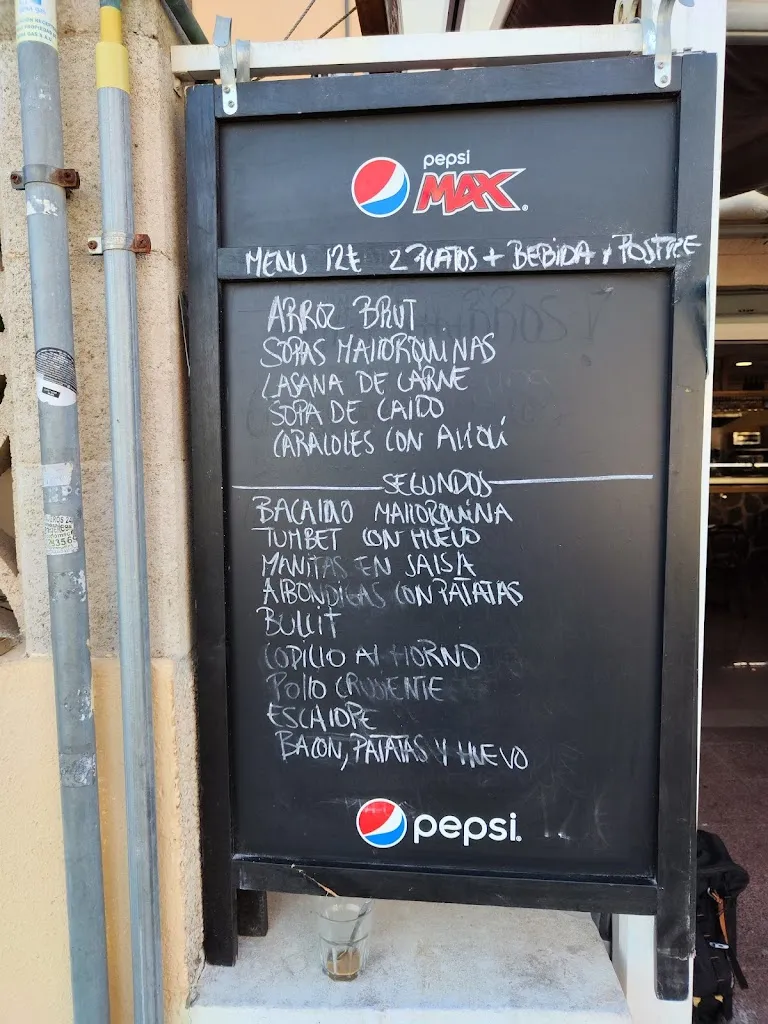 pepsi
MAX
MENU 12€ 2 PLATOS + BEBIDA Y POSTRE
ARROZ BRUT
SOPAS MALLORQUINAS
LASAÑA DE CARNE
SOPA DE CALDO
CARACOLES CON ALLIOLÍ
SEGUNDOS
BACALLAO MALLORQUINA
TUMBET CON HUEVO
MANITAS EN SALSA
ALBONDIGAS CON PATATAS
BULLIT
CODILLO AL HORNO
POLLO CRUJIENTE
ESCALOPE
BACON, PATATAS Y HUEVO
pepsi.